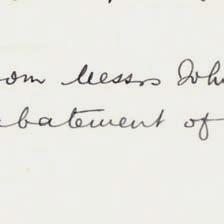 om Messrs Joh
batement of